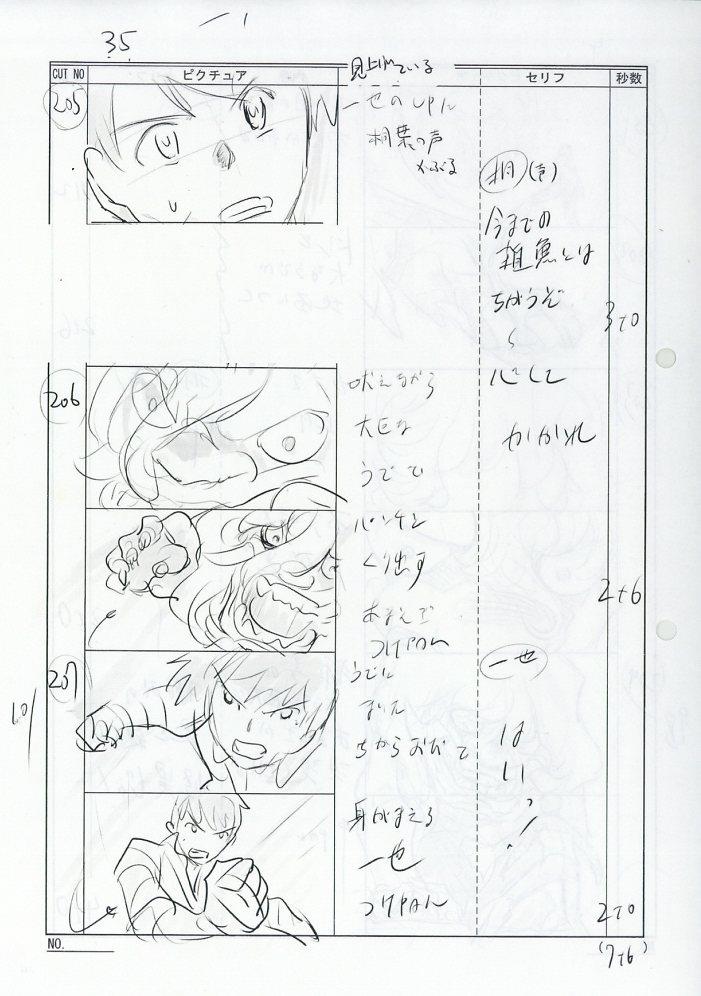 35
CUT NO ピクチュア セリフ 秒数
見上げている
205
一也のUPに
桐葉の声
かぶる
桐(声)
今までの
雑魚とは
ちがうぞ
心して
かかれ
3+0
206
吠えながら
大巨な
うでで
パンチを
くり出す
つけPAN
2+6
207
うでに
ちから
身がまえる
一也
つけPAN
一也
はい!
2+0
NO.
(7+6)